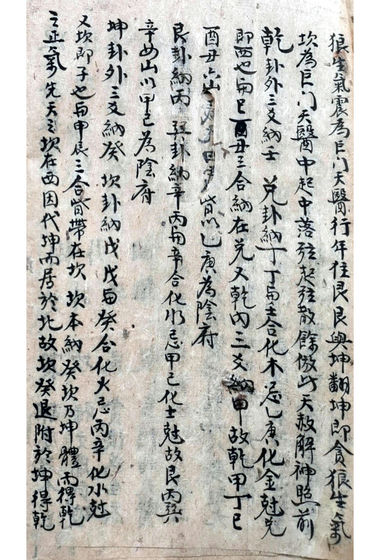 狼生氣震為巨门天醫行年往艮艮與坤翻坤即貪狼生氣
坎為巨门天醫中起中落弦起弦散餘倣此天赦解神照前
乾卦外三爻納壬兌卦納丁丁與壬合化木忌乙庚化金尅兌
即酉也與巳酉丑三合納在兌又乾內三爻納甲故乾甲丁巳
酉丑六山皆以乙庚為陰府
艮卦納丙巽卦納辛丙與辛合化水忌甲己化土尅故艮丙巽
辛四山以甲己為陰府
坤卦外三爻納癸坎卦納戊戊與癸合化火忌丙辛化水尅
又坎即子也與申辰三合皆帶在坎坎本納癸坎乃坤體而得乾
之正氣先天之坎在西因代坤而居於北故坎癸退附於坤得乾